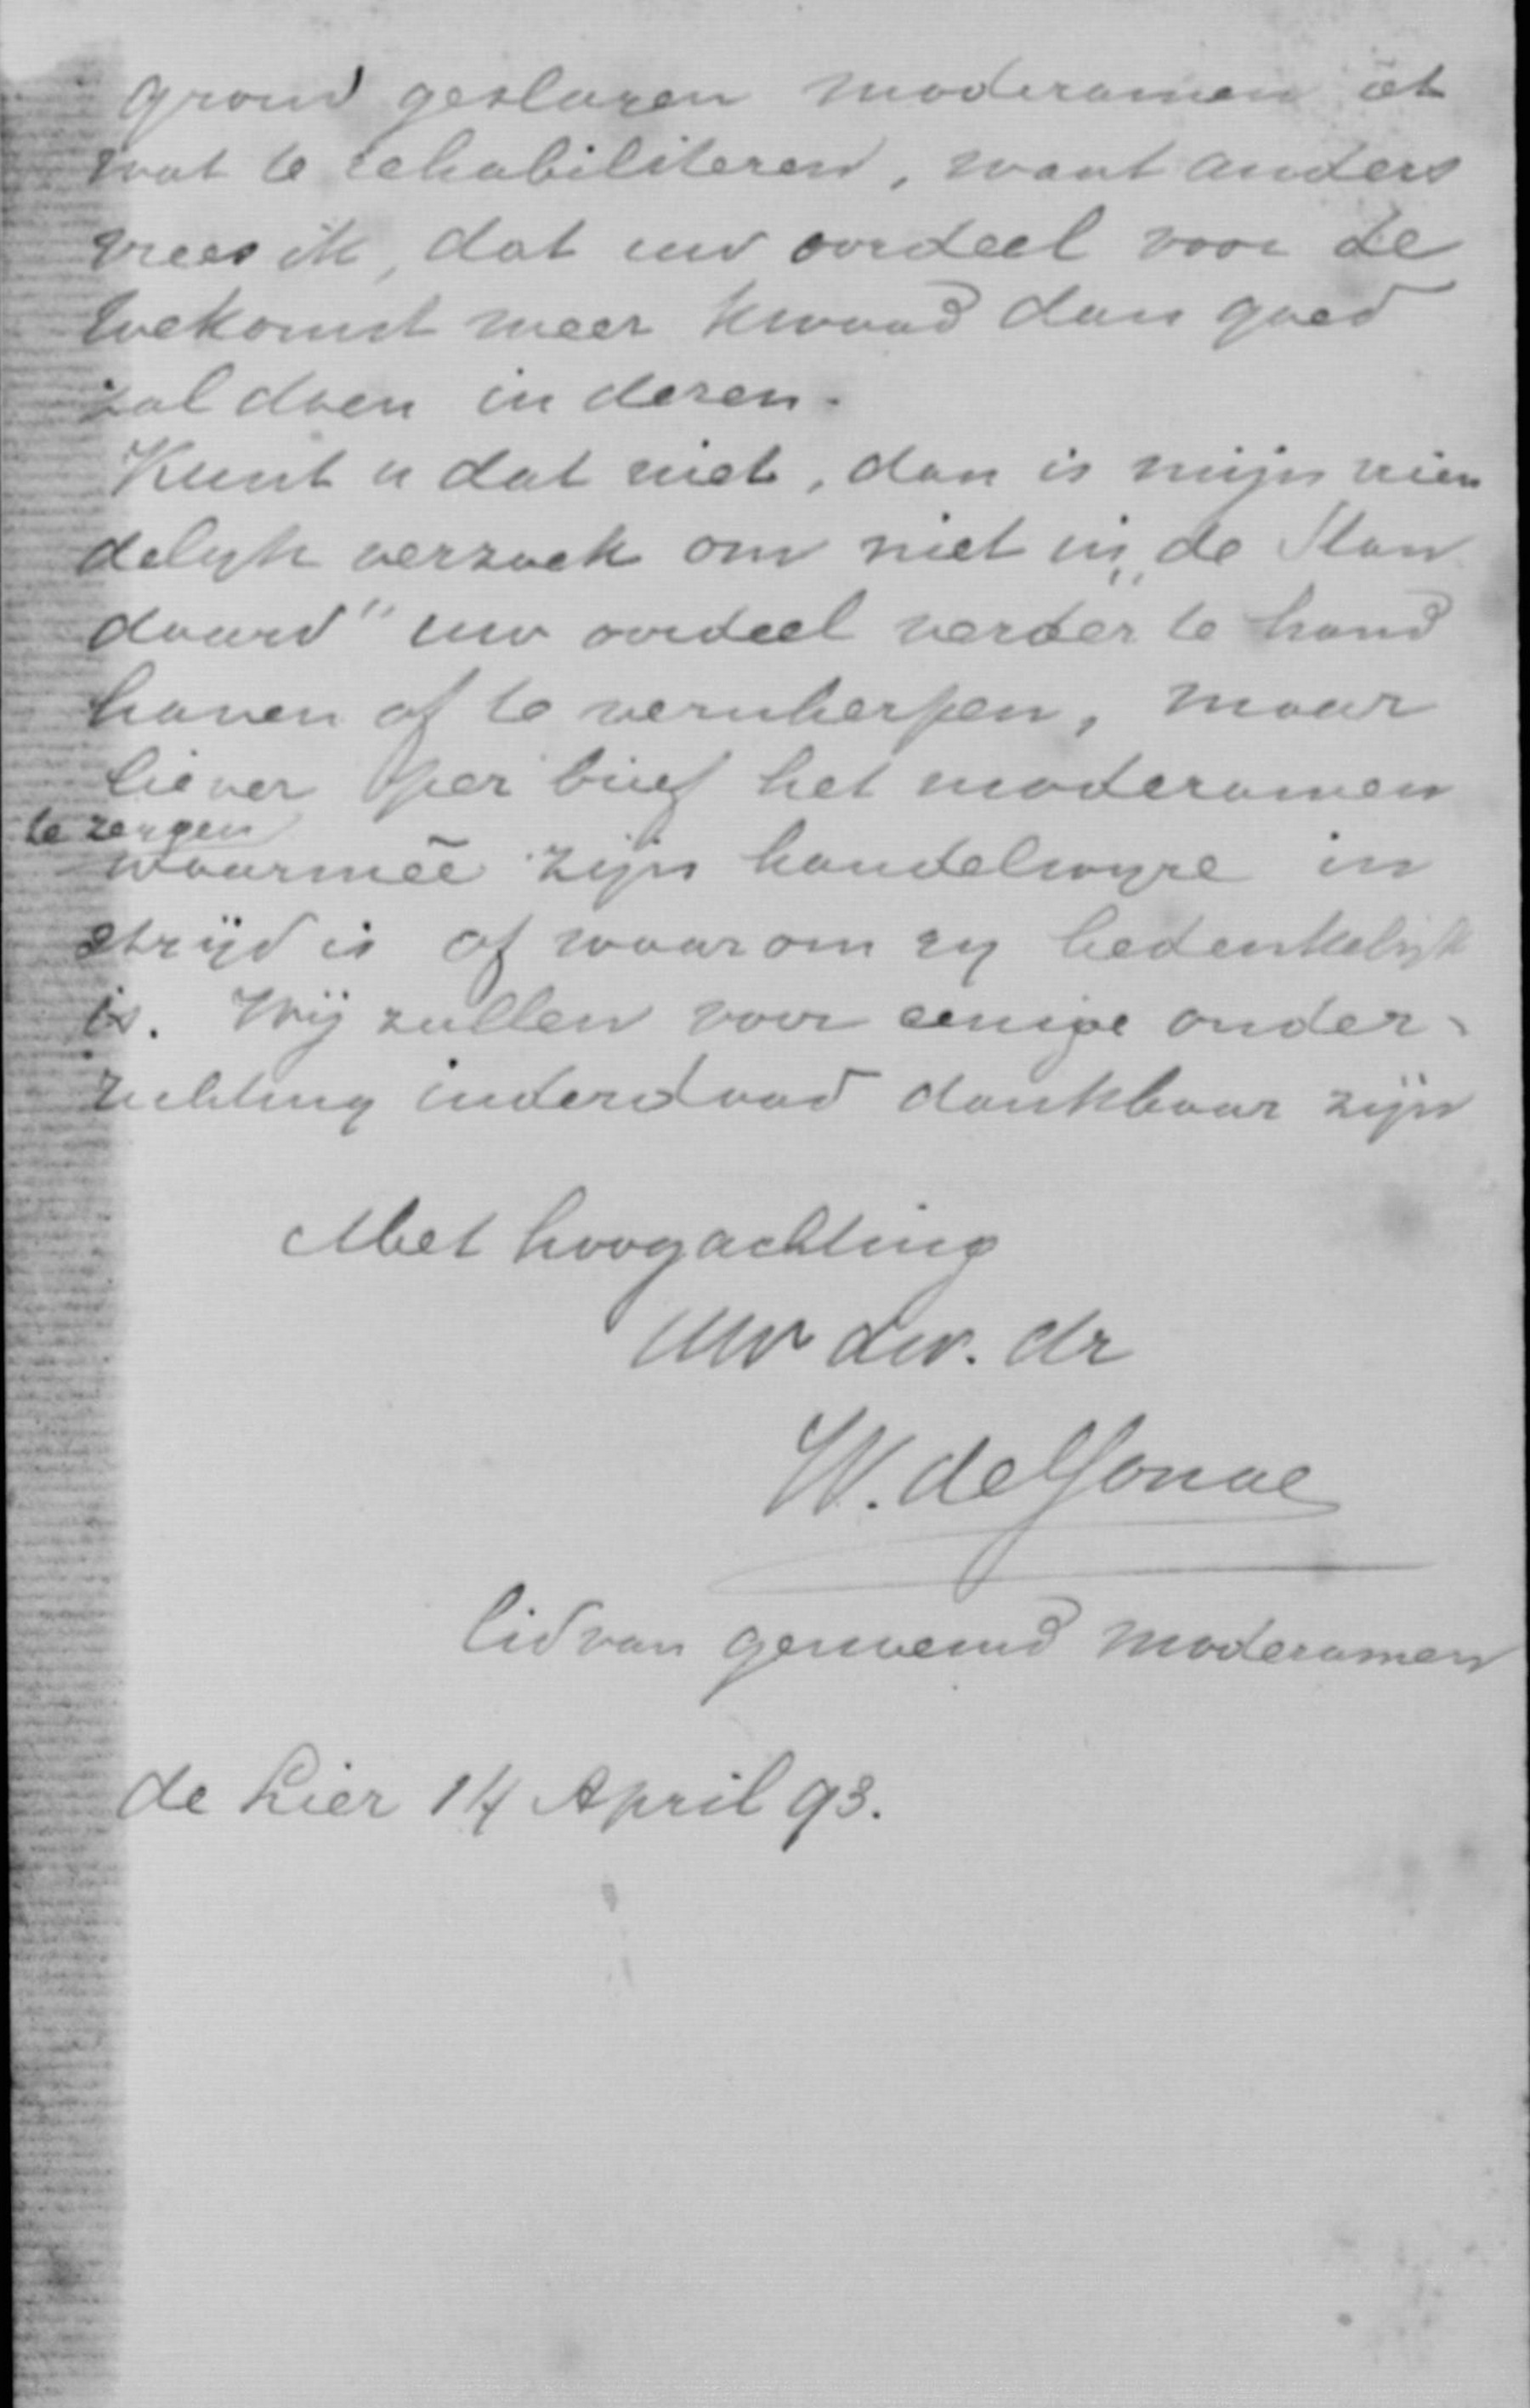 grond geslagen moderamen iet
wat te rehabiliteren, want anders
vrees ik, dat uw oordeel voor de
toekomst meer kwaad dan goed
zal doen in dezen.
Kunt u dat niet, dan is mijn vrien
delijk verzoek om niet in „de Stan
daard" uw oordeel verder te hand
haven of te verscherpen, maar
liever per brief het moderamen
te zeggen
waarmeê zijn handelwijze in
strijd is of waarom zij bedenkelijk
is. Wij zullen voor eenige onder-
richting inderdaad dankbaar zijn
Met hoogachting
Uw dw. dr
W. de Jonge
lid van genoemd moderamen
de Lier 14 April 93.